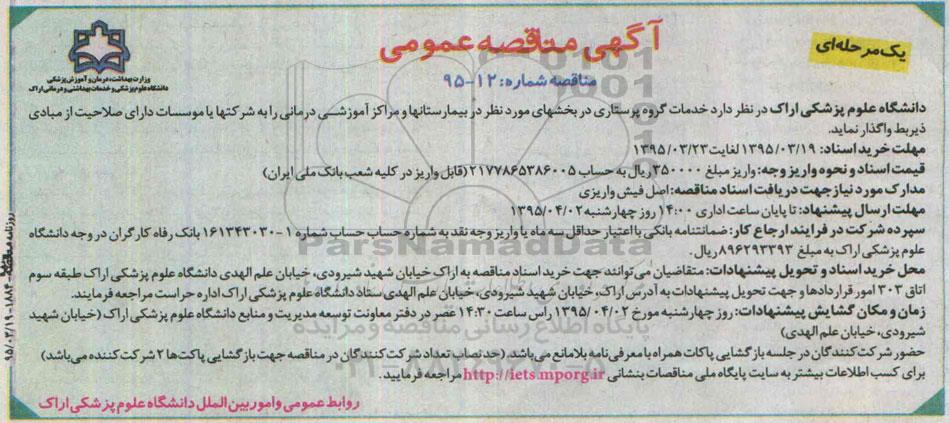 آگهی مناقصه عمومی
یک مرحله‌ای
مناقصه شماره: ۱۲-۹۵
وزارت بهداشت، درمان و آموزش پزشکی
دانشگاه علوم پزشکی و خدمات بهداشتی و درمانی اراک
دانشگاه علوم پزشکی اراک در نظر دارد خدمات گروه پرستاری در بخشهای مورد نظر در بیمارستانها و مراکز آموزشی درمانی را به شرکتها یا موسسات دارای صلاحیت از مبادی
ذیربط واگذار نماید.
مهلت خرید اسناد: ۱۳۹۵/۰۳/۱۹ لغایت ۱۳۹۵/۰۳/۲۳
قیمت اسناد و نحوه واریز وجه: واریز مبلغ ۳۵۰۰۰۰ ریال به حساب ۲۱۷۷۸۶۵۳۸۶۰۰۵ (قابل واریز در کلیه شعب بانک ملی ایران)
مدارک مورد نیاز جهت دریافت اسناد مناقصه: اصل فیش واریزی
مهلت ارسال پیشنهاد: تا پایان ساعت اداری ۱۴:۰۰ روز چهارشنبه ۱۳۹۵/۰۴/۰۲
سپرده شرکت در فرایند ارجاع کار: ضمانتنامه بانکی با اعتبار حداقل سه ماه یا واریز وجه نقد به شماره حساب حساب شماره ۱-۱۶۱۳۴۳۰۳۰ بانک رفاه کارگران در وجه دانشگاه
علوم پزشکی اراک به مبلغ ۸۹۶۲۹۳۳۹۳ ریال.
محل خرید اسناد و تحویل پیشنهادات: متقاضیان می‌توانند جهت خرید اسناد مناقصه به اراک خیابان شهید شیرودی، خیابان علم الهدی دانشگاه علوم پزشکی اراک طبقه سوم
اتاق ۳۰۳ امور قراردادها و جهت تحویل پیشنهادات به آدرس اراک، خیابان شهید شیرودی، خیابان علم الهدی ستاد دانشگاه علوم پزشکی اراک اداره حراست مراجعه فرمایند.
زمان و مکان گشایش پیشنهادات: روز چهارشنبه مورخ ۱۳۹۵/۰۴/۰۲ رأس ساعت ۱۴:۳۰ عصر در دفتر معاونت توسعه مدیریت و منابع دانشگاه علوم پزشکی اراک (خیابان شهید
شیرودی، خیابان علم الهدی)
حضور شرکت کنندگان در جلسه بازگشایی پاکات همراه با معرفی نامه بلامانع می‌باشد. (حد نصاب تعداد شرکت کنندگان در مناقصه جهت بازگشایی پاکت‌ها ۲ شرکت کننده می‌باشد)
برای کسب اطلاعات بیشتر به سایت پایگاه ملی مناقصات بنشانی http://iets.mporg.ir مراجعه فرمایید.
روابط عمومی و امور بین الملل دانشگاه علوم پزشکی اراک
ParsNamadData
پایگاه اطلاع رسانی مناقصه و مزایده